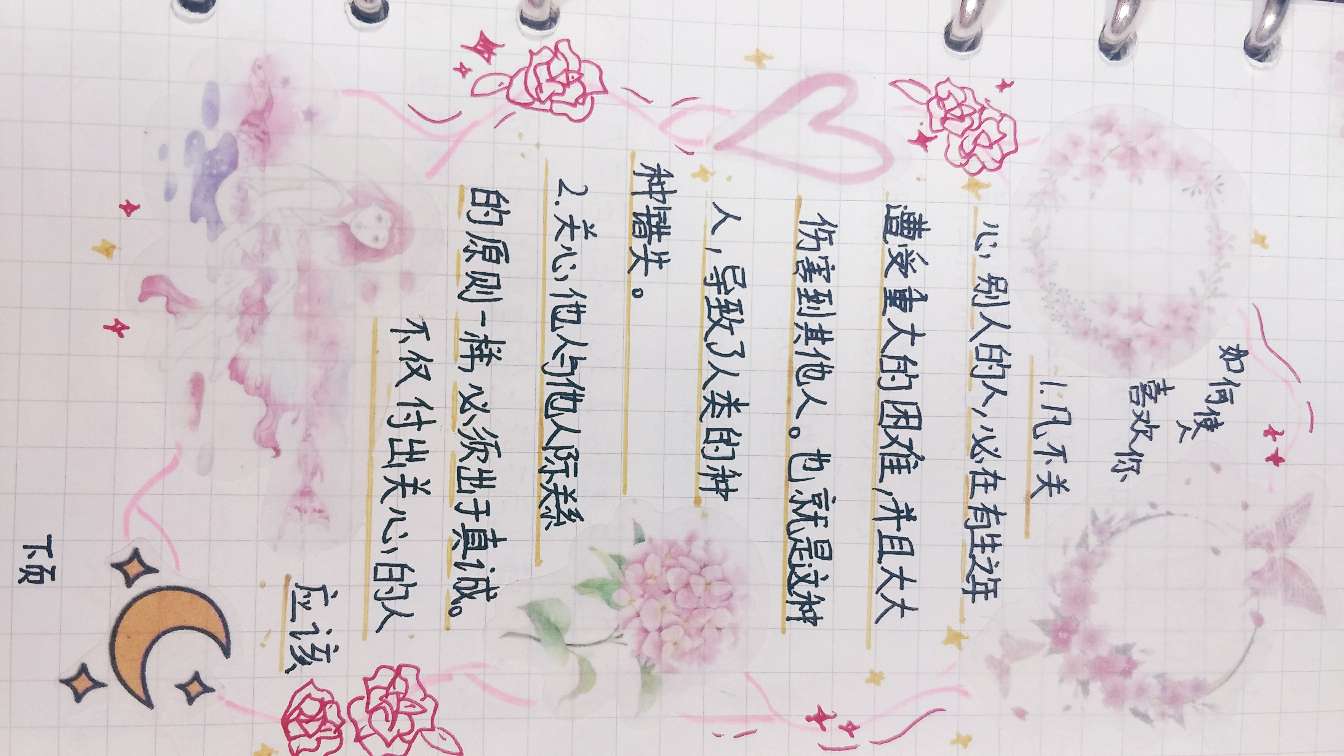 如何使人
喜欢你
1.凡不关
心别人的人,必在有生之年
遭受重大的困难,并且大大
伤害到其他人。也就是这种
人,导致了人类的种
种错失。
2.关心他人与他人际关系
的原则一样必须出于真诚。
不仅付出关心的人
应该
下页